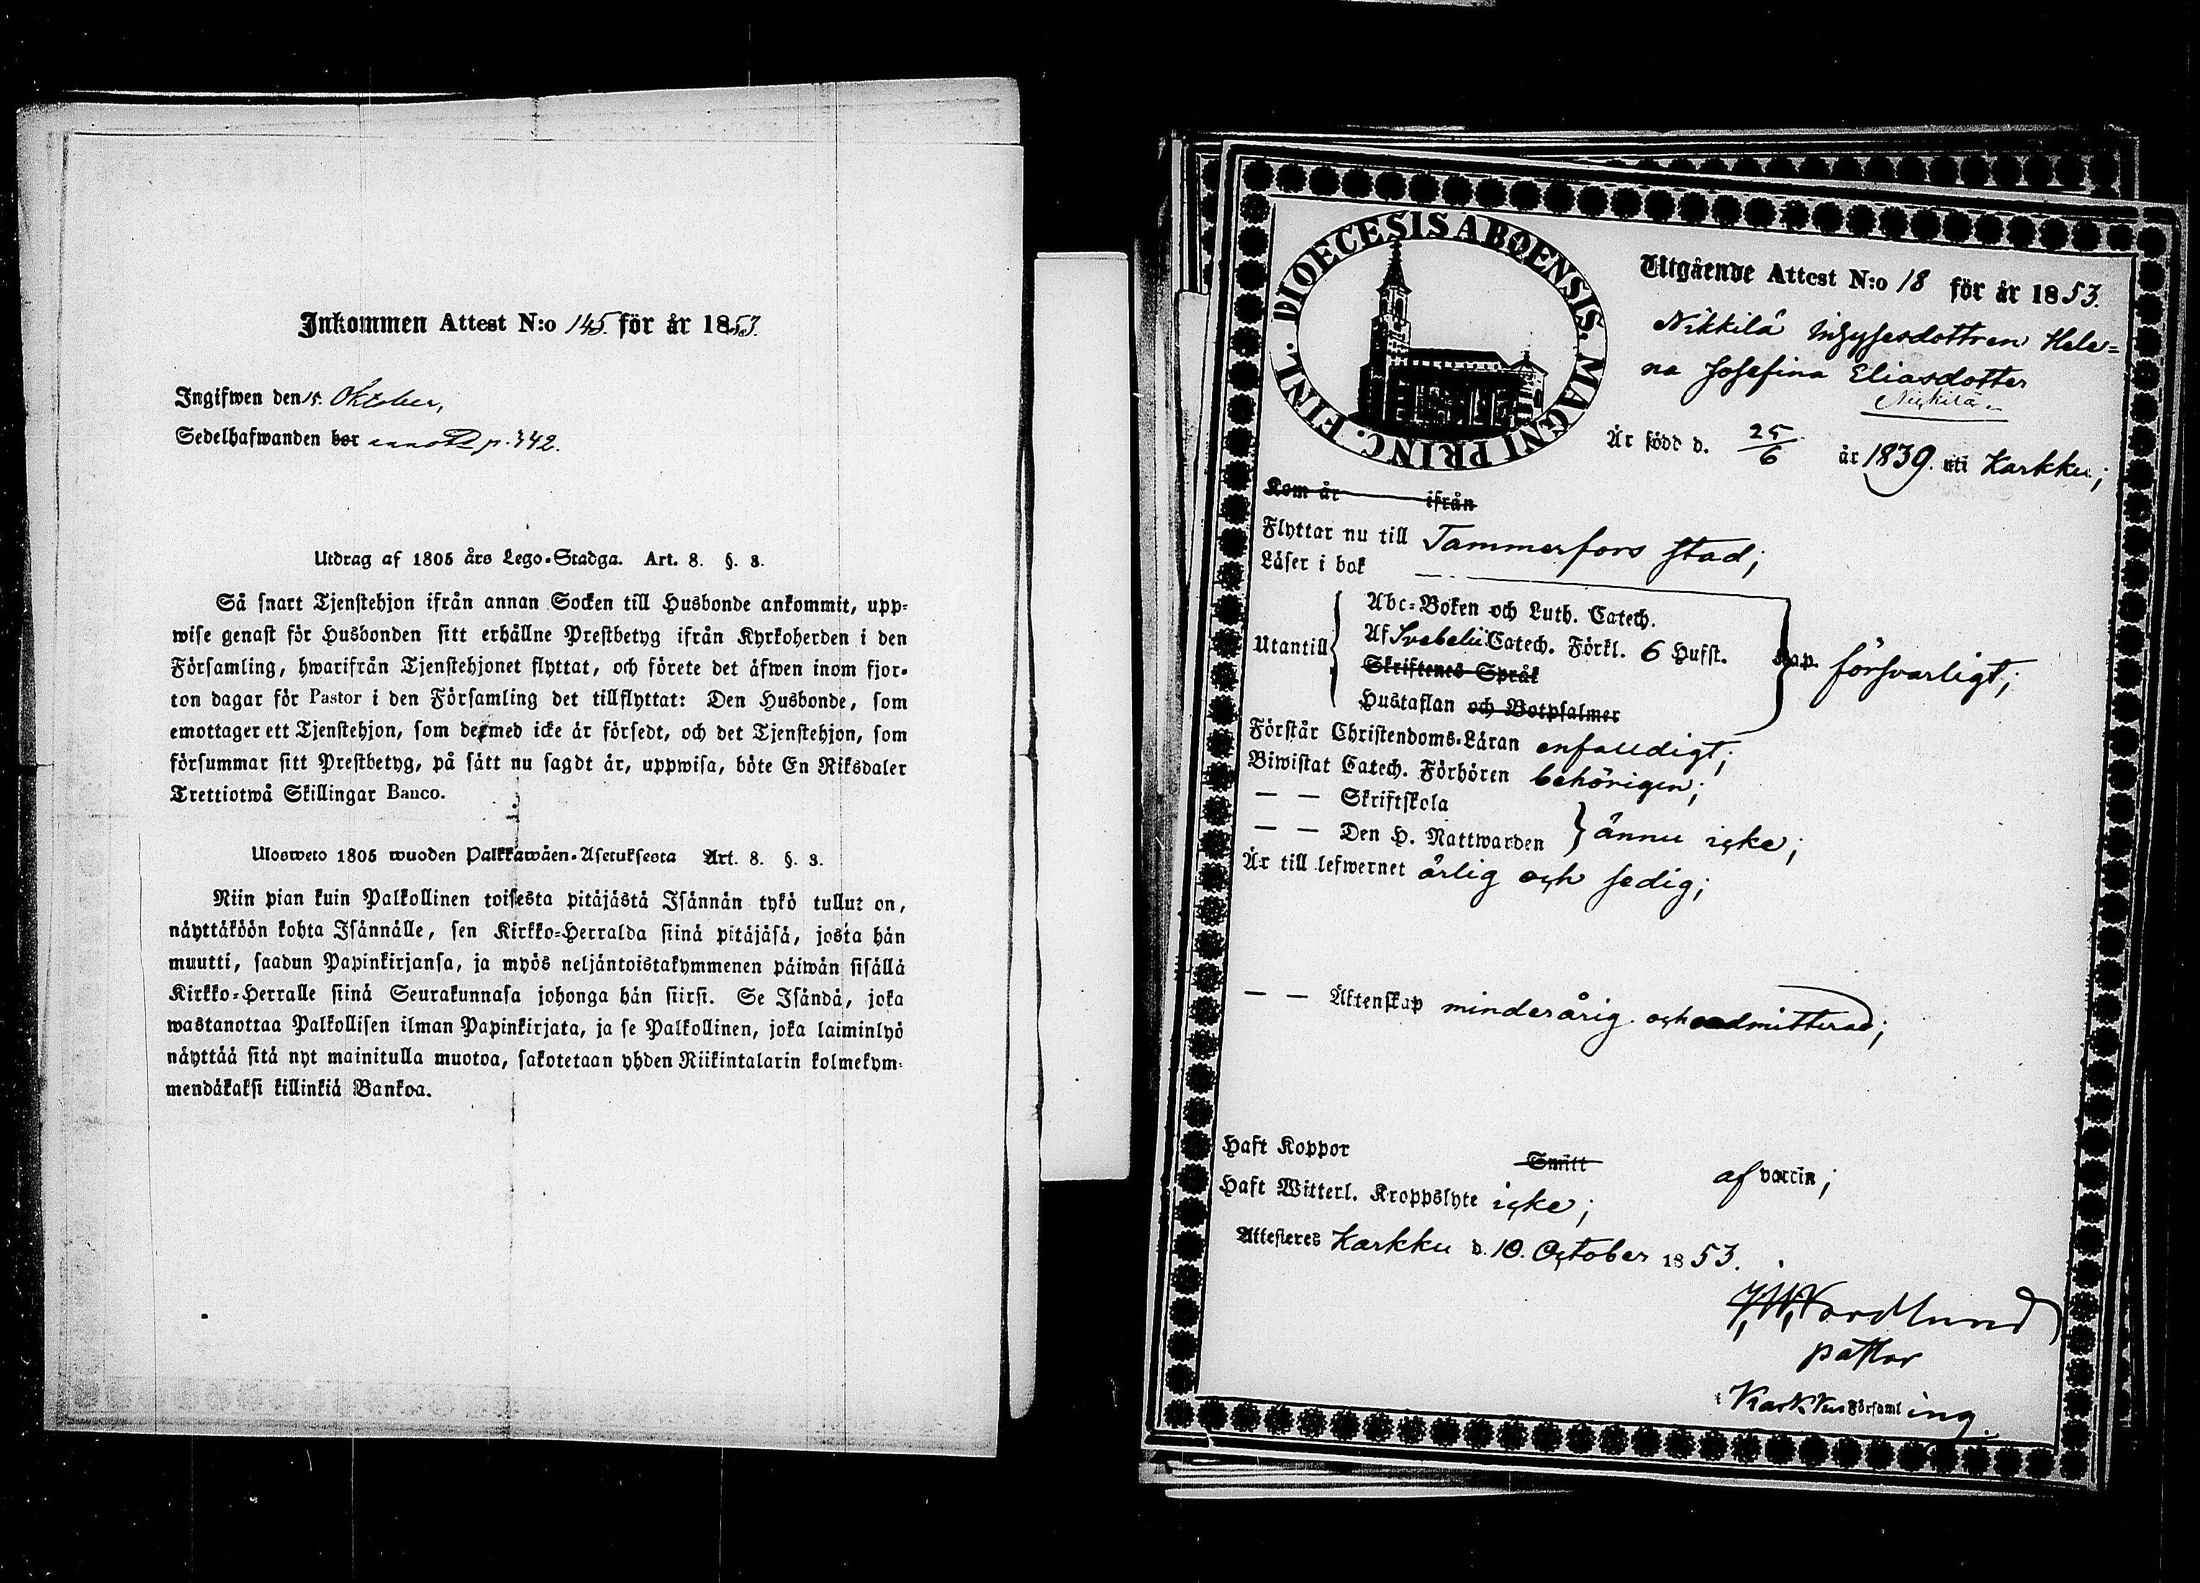 Inkommen Attest N:o 145. för år 1853.
Ingifwen den 15. Oktober,
Sedelhafwanden bor p. 342.
Utdrag af 1805 års Lego-Stadga. Art. 8. §. 3.
Så snart Tjenstehjon ifrån annan Socken till Husbonde ankommit, upp-
wise genast för Husbonden sitt erhållne Prestbetyg ifrån Kyrkoherden i den
Församling, hwarifrån Tjenstehjonet flyttat, och förete det äfwen inom fjor-
ton dagar för Pastor i den Församling det tillflyttat: Den Husbonde, som
emottager ett Tjenstehjon, som dermed icke är försedt, och det Tjenstehjon, som
försummar sitt Prestbetyg, på sätt nu sagdt är, uppwisa, böte En Riksdaler
Trettiotwå Skillingar Banco.
Ulosweto 1805 wuoden Palkkawäen-Asetuksesta Art. 8. §. 3.
Niin pian kuin Palkollinen toisesta pitäjästä Isännän tykö tullut on,
näyttäköön kohta Isännälle, sen Kirkko-Herralda siinä pitäjäsä, josta hän
muutti, saadun Papinkirjansa, ja myös neljäntoistakymmenen päiwän sisällä
Kirkko-Herralle siinä Seurakunnasa johonga hän siirsi. Se Isändä, joka
wastanottaa Palkollisen ilman Papinkirjata, ja se Palkollinen, joka laiminlyö
näyttää sitä nyt mainitulla muotoa, sakotetaan yhden Riikintalarin kolmekym-
mendäkaksi killinkiä Bankoa.
DIOECESIS ABOENSIS. MAGNI PRINC. FINL.
Utgående Attest N:o 18 för år 1853.
Nikkilä Inhysesdottren Hele-
na Josefina Eliasdotter
Nickilä
Är född d. 25/6 år 1839. uti Karkku;
Kom år ifrån
Flyttar nu till Tammerfors stad;
Läser i bok
Abc-Boken och Luth. Catech.
Utantill Af Svebelii Catech. Förkl. 6 Hufst. Kap. försvarligt;
Skriftenes Språk
Hustaflan och Botpsalmer
Förstår Christendoms-Läran enfalldigt;
Biwistat Catech. Förhören behörigen;
— — Skriftskola
— — Den H. Nattwarden ännu icke;
Är till lefwernet ärlig och sedig;
— — Äktenskap minderårig och oadmitterad;
Haft Koppor Smitt af vaccin;
Haft Witterl. Kroppslyte icke;
Attesteres Karkku d. 10. October 1853.
J. W. Nordlund
pastor
i Karkku Församling.